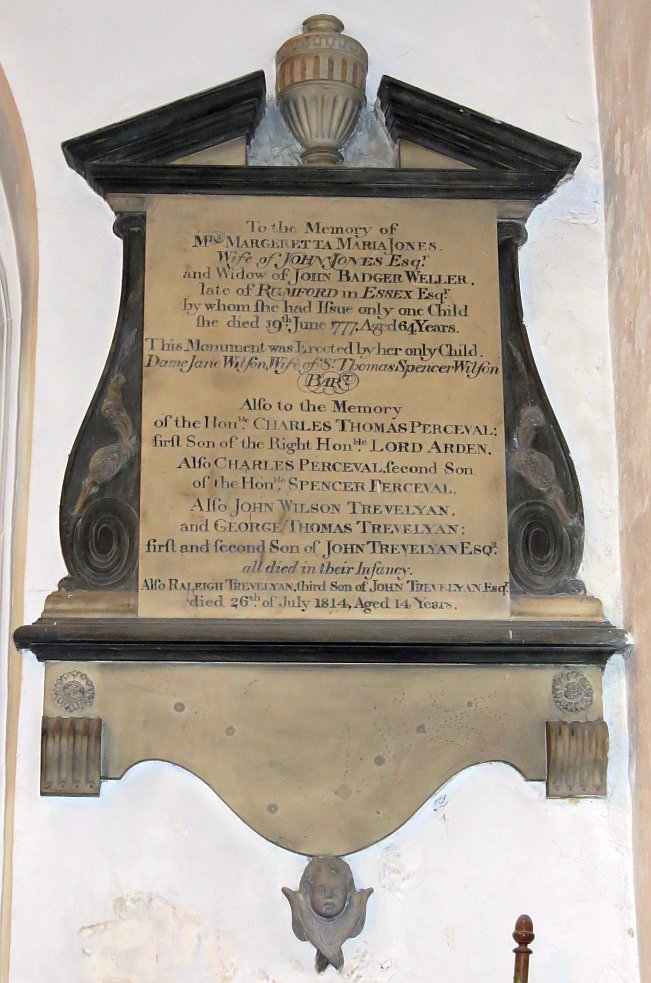 To the Memory of
Mrs MARGERETTA MARIA JONES.
Wife of JOHN JONES Esqr.
and Widow of JOHN BADGER WELLER,
late of RUMFORD in ESSEX Esqr.
by whom she had Issue only one Child
she died 19th June 1777. Aged 64 Years.
This Monument was Erected by her only Child.
Dame Jane Wilson, Wife of Sr. Thomas Spencer Wilson
BART.
Also to the Memory
of the Honble. CHARLES THOMAS PERCEVAL;
first Son of the Right Honble. LORD ARDEN,
Also CHARLES PERCEVAL, second Son
of the Honble. SPENCER PERCEVAL,
Also JOHN WILSON TREVELYAN,
and GEORGE THOMAS TREVELYAN;
first and second Son of JOHN TREVELYAN Esqr.
all died in their Infancy.
Also RALEIGH TREVELYAN, third Son of JOHN TREVELYAN Esqr.
died 26th of July 1814, Aged 14 Years.